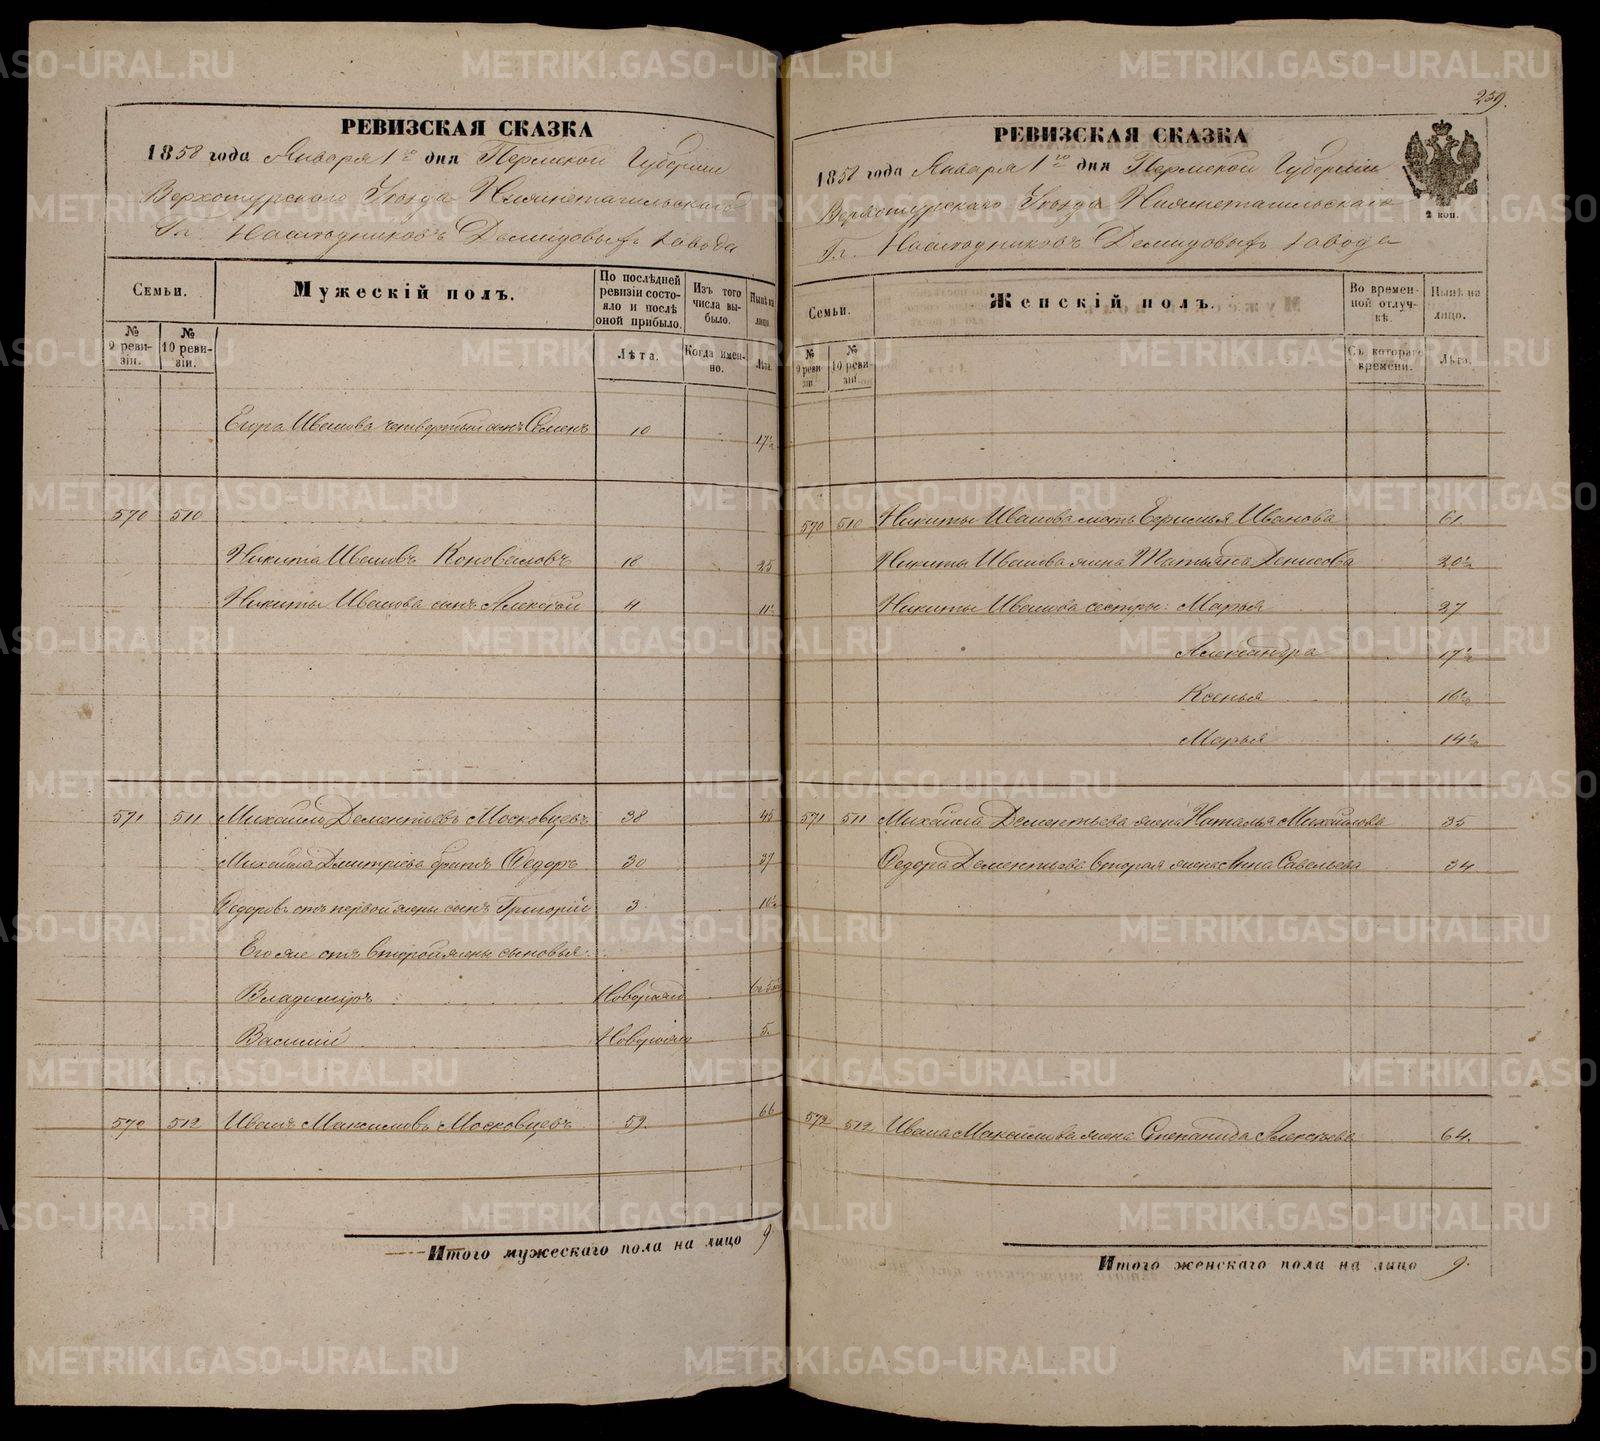 259.
РЕВИЗСКАЯ СКАЗКА
1858 года Января 1го дня Пермской Губернии
Верхотурского Уезда Нижнетагильскаго
Гг. Наследниковъ Демидовыхъ завода
Семьи.
Мужескій полъ.
По послѣдней ревизіи состояло и послѣ оной прибыло.
Изъ того числа выбыло.
Нынѣ на лицо.
№ 9 ревизіи.
№ 10 ревизіи.
Лѣта.
Когда именно.
Лѣта.
Егора Иванова четвертый сынъ Семенъ 10 17½
570 510
Никита Ивановъ Коноваловъ 18 25
Никиты Иванова сынъ Алексѣй 4 11½
571 511 Михайло Дементьевъ Московцевъ 38 45
Михайла Дмитріева братъ Федоръ 30 37
Федоровъ отъ первой жены сынъ Григорій 3 10½
Его же отъ второй жены сыновья:
Владимиръ Новорожд
Василій Новорожд 5.
570 512 Иванъ Максимовъ Московцевъ 59. 66
Итого мужескаго пола на лицо 9.
РЕВИЗСКАЯ СКАЗКА
1858 года Января 1го дня Пермской Губерніи
Верхотурскаго Уезда Нижнетагильскаго
Гг. Наследниковъ Демидовыхъ завода
2 коп.
Семьи.
Женскій полъ.
Во временной отлучкѣ.
Нынѣ на лицо.
№ 9 ревизіи
№ 10 ревизіи.
Съ котораго времени.
Лѣта.
570 510 Никиты Иванова мать Ефимья Иванова 61
Никиты Иванова жена Татьяна Денисова 20½
Никиты Иванова сестры: Марья 27
Александра 17½
Ксенья 16½
Марья 14½
571 511 Михайла Дементьева жена Наталья Михайлова 35
Федора Дементьева вторая жена Анна Савельева 34
572 512 Ивана Максимова жена Степанида Алексѣева 64.
Итого женскаго пола на лицо 9.
METRIKI.GASO-URAL.RU